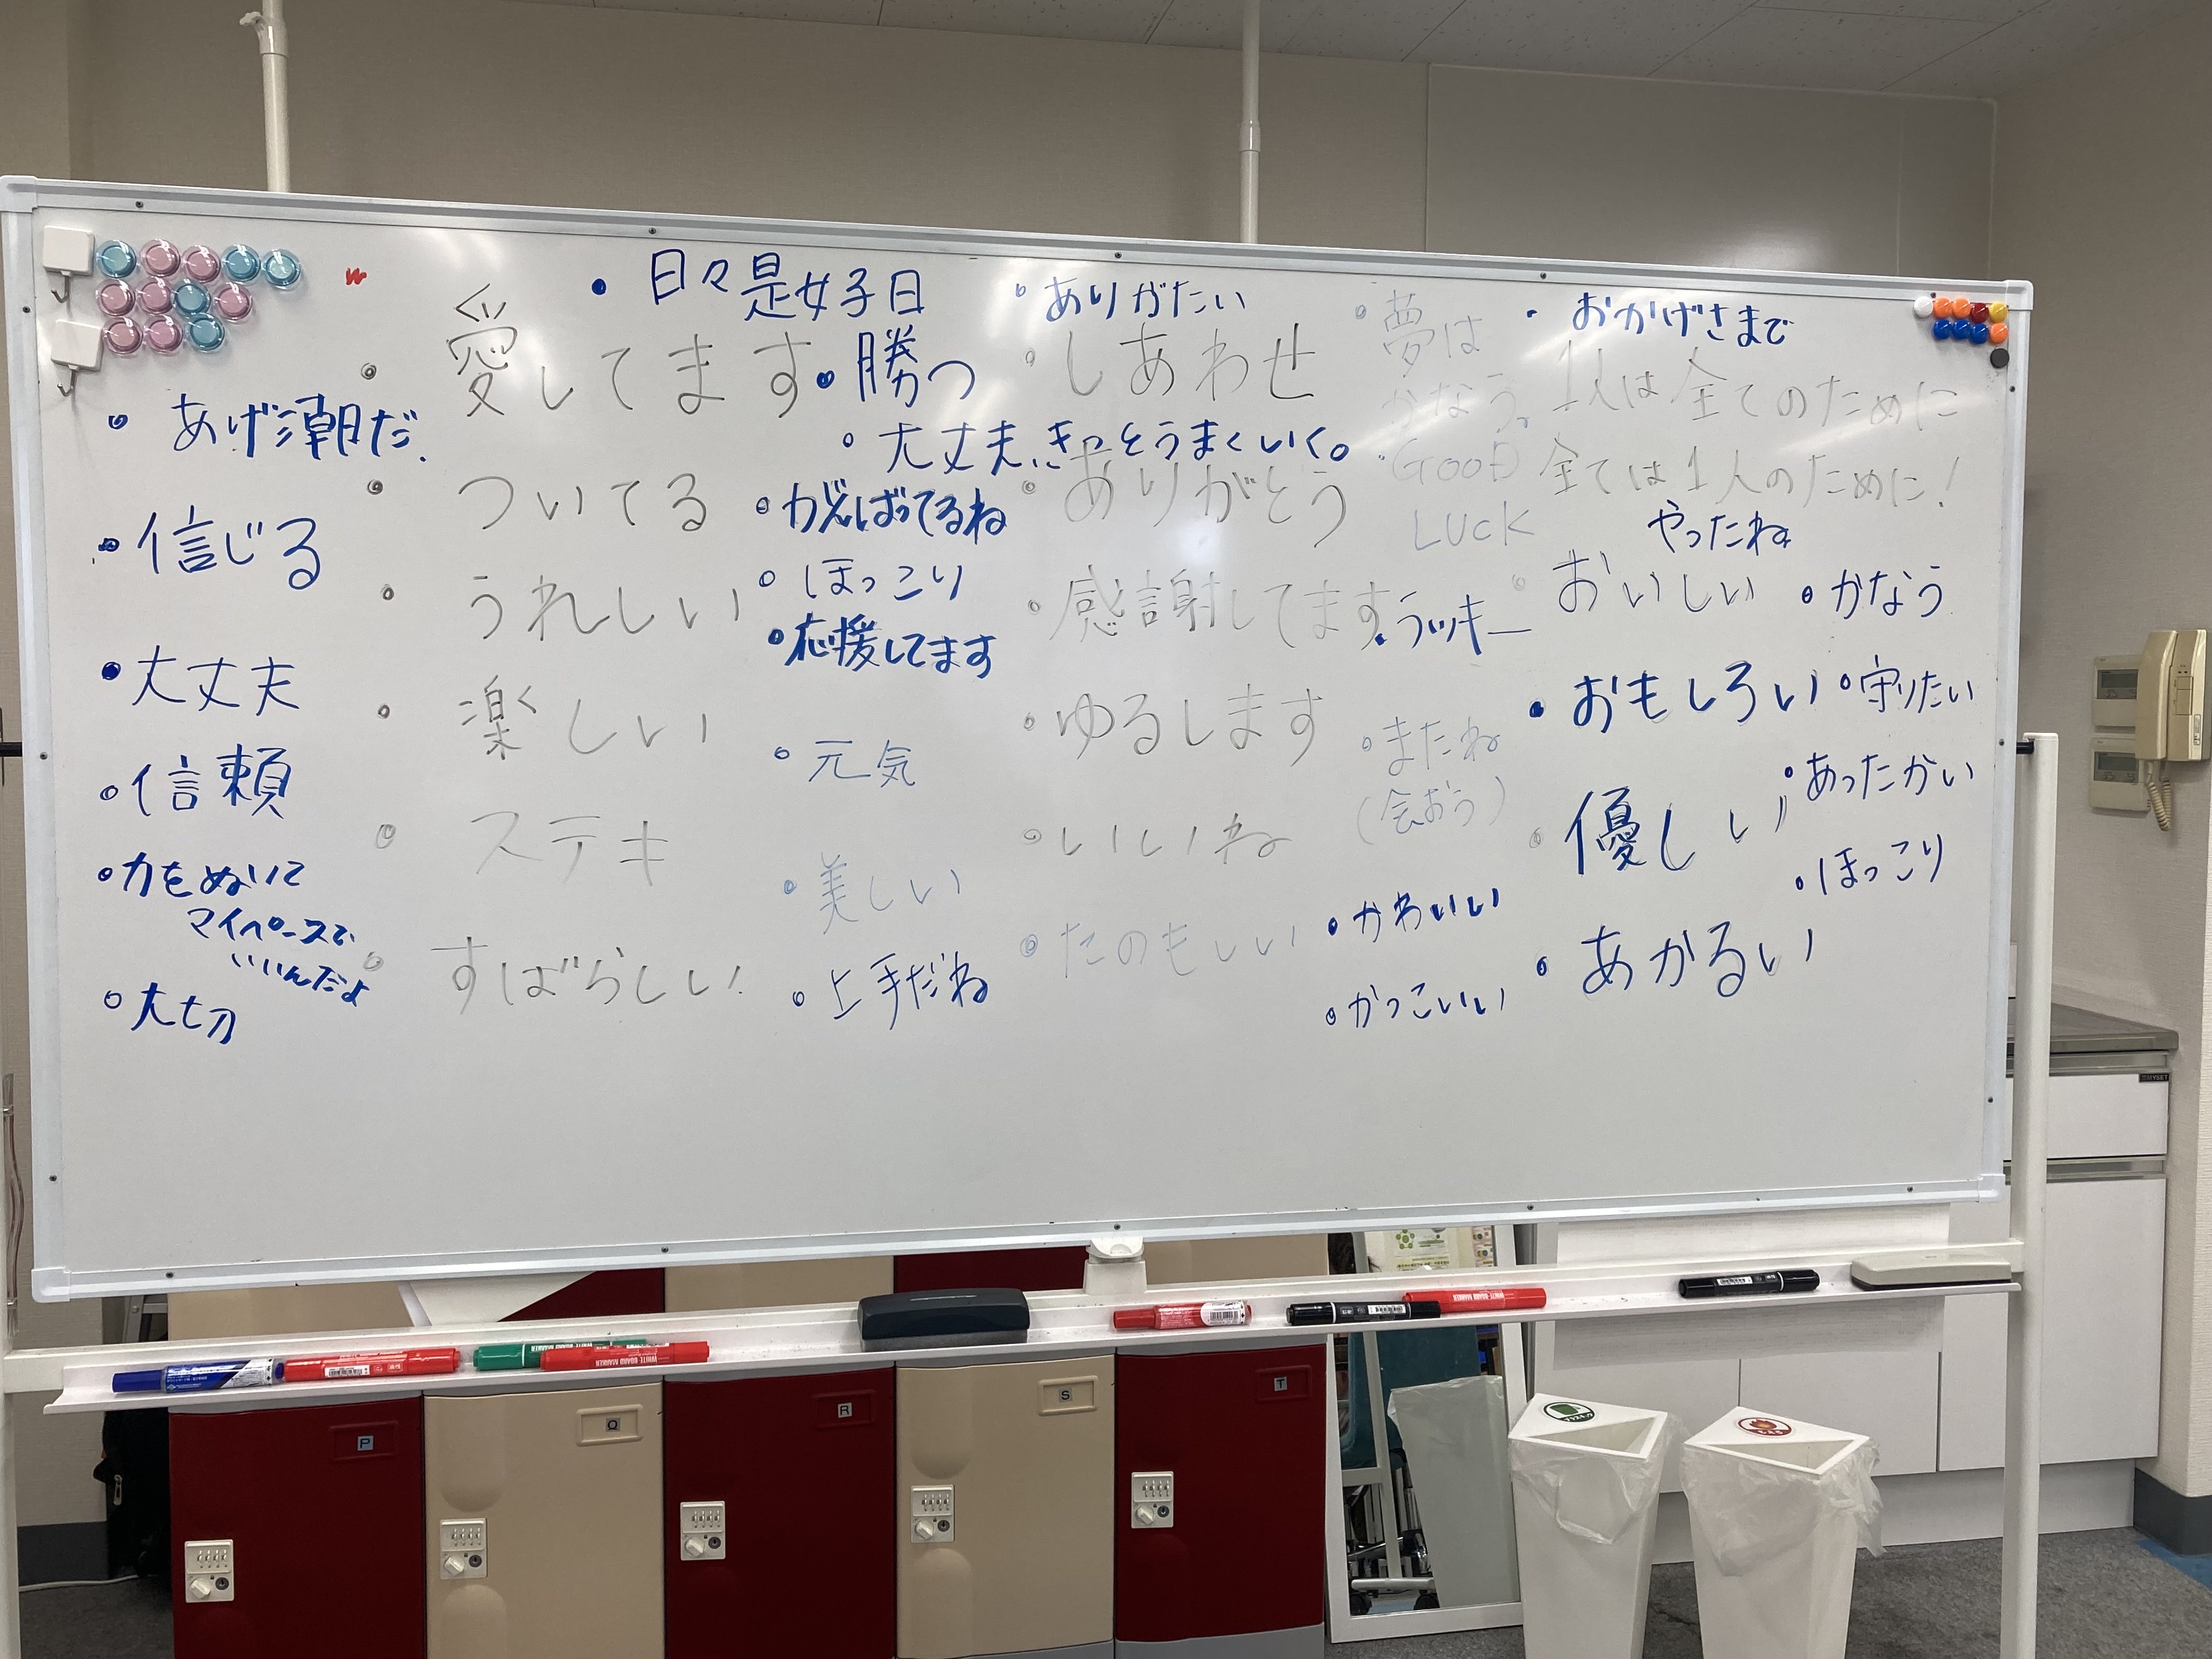 ・日々是好日
・ありがたい
・おかげさまで
・愛してます
・勝つ
・しあわせ
・夢は
かなう。
1人は全てのために
全ては1人のために!
・あげ潮だ.
・大丈夫、きっとうまくいく。
・GOOD
LUCK
・ついてる
・がんばってるね
・ありがとう
やったね
・信じる
・うれしい
・ほっこり
・感謝してます
・ラッキー
・おいしい
・かなう
・応援してます
・大丈夫
・楽しい
・元気
・ゆるします
・またね
(会おう)
・おもしろい
・守りたい
・信頼
・ステキ
・美しい
・いいね
・優しい
・あったかい
・ほっこり
・力をぬいて
マイペースで
いいんだよ
・すばらしい!
・上手だね
・たのもしい
・かわいい
・かっこいい
・あかるい
・大切
WHITE BOARD MARKER
WHITE BOARD MARKER
WHITE BOARD MARKER
P
Q
R
S
T